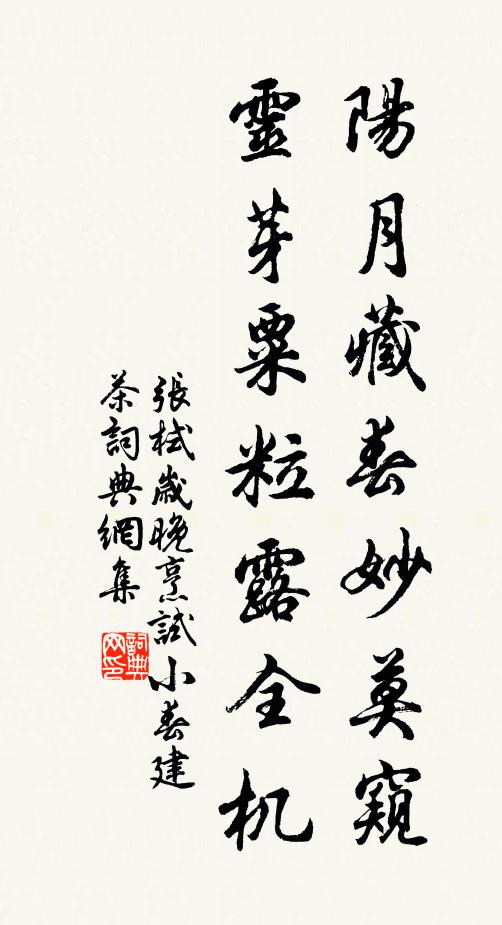 陽月藏春妙莫窺
靈芽粟粒露全机
張栻歲晚烹試小春建
茶詞典網集
詞典网印